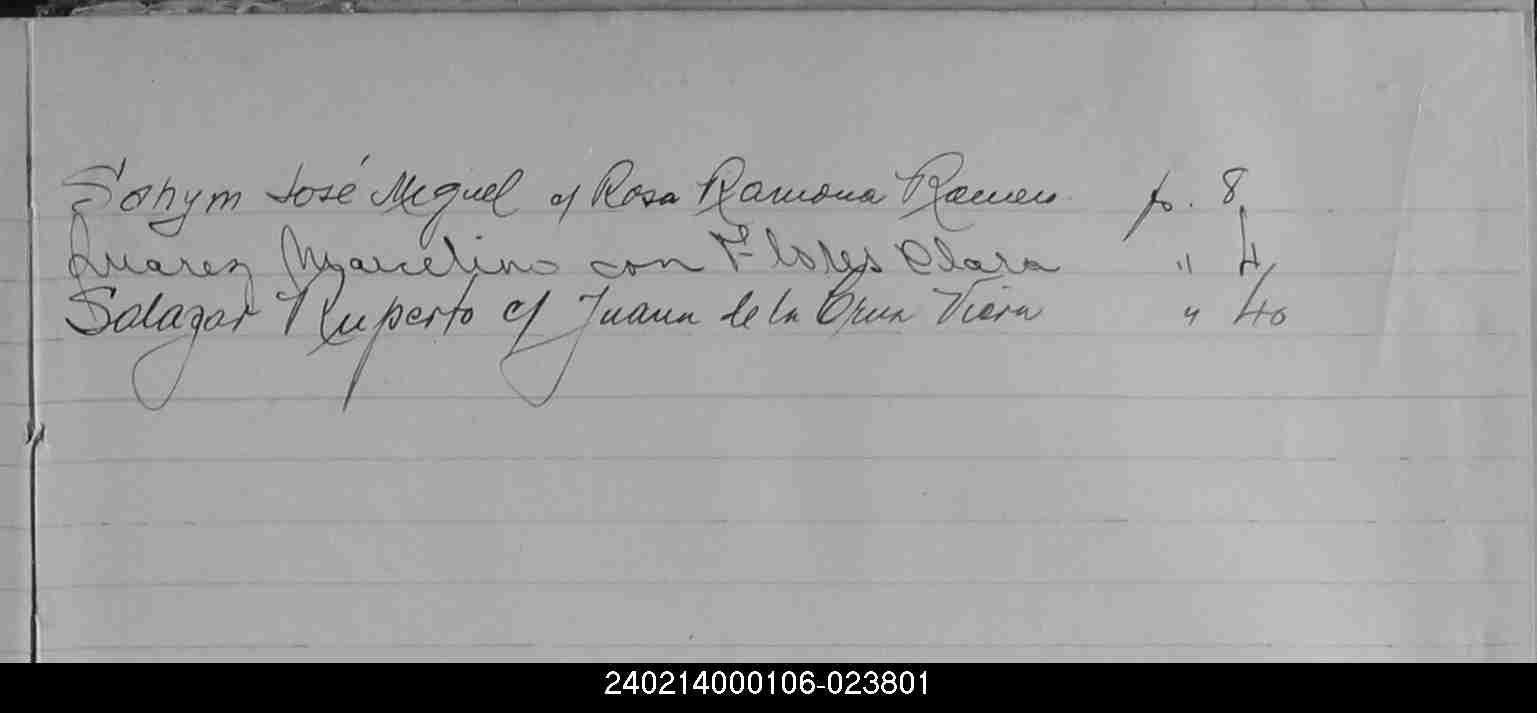 Sohym José Miguel c/ Rosa Ramona fo. 8
Juarez Marcelino con Flores Clara " 4
Salazar Ruperto c/ Juana de la Cruz Viera " 40
240214000106-023801